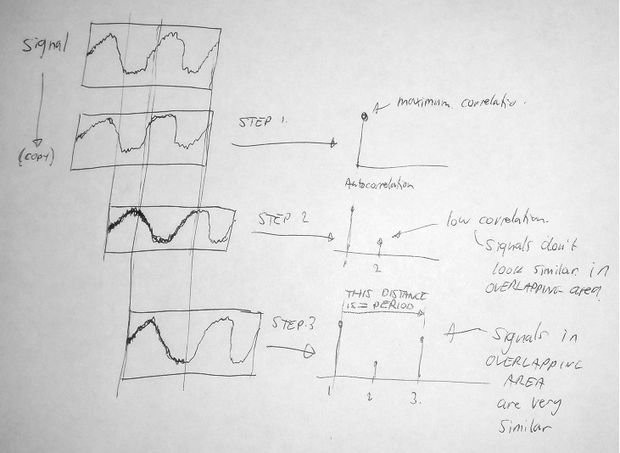 Signal
(COPY)
STEP 1.
maximum correlatio.
Autocorrelation
STEP 2
2
low correlation.
Signals don't
look similar in
OVERLAPPING area
STEP.3
THIS DISTANCE
IS = PERIOD
1 2 3.
Signals in
OVERLAPPING
AREA
are very
similar